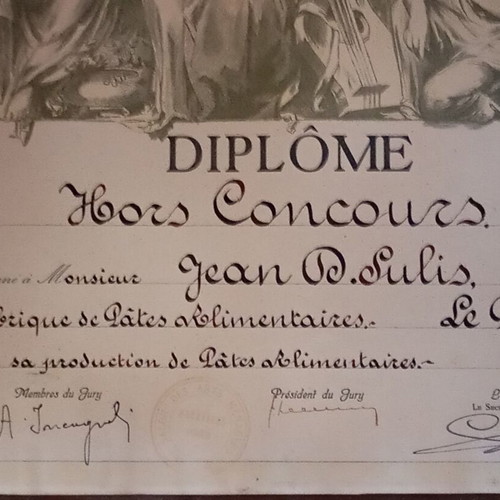 DIPLÔME
Hors Concours.
à Monsieur Jean D. Sulis,
brique de Pâtes Alimentaires.- Le
sa production de Pâtes Alimentaires.-
Membres du Jury Président du Jury
Le Sec